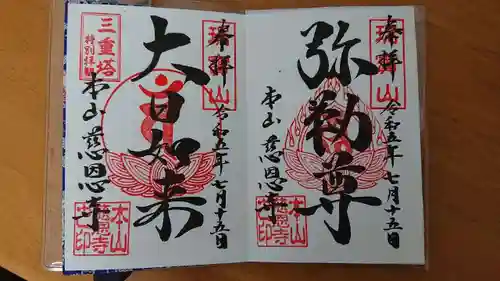 奉拝
弥勒尊
令和五年七月十五日
本山 慈恩寺
本山慈恩寺之印
奉拝
三重塔
特別拝観
大日如来
令和五年七月十五日
本山 慈恩寺
本山慈恩寺之印